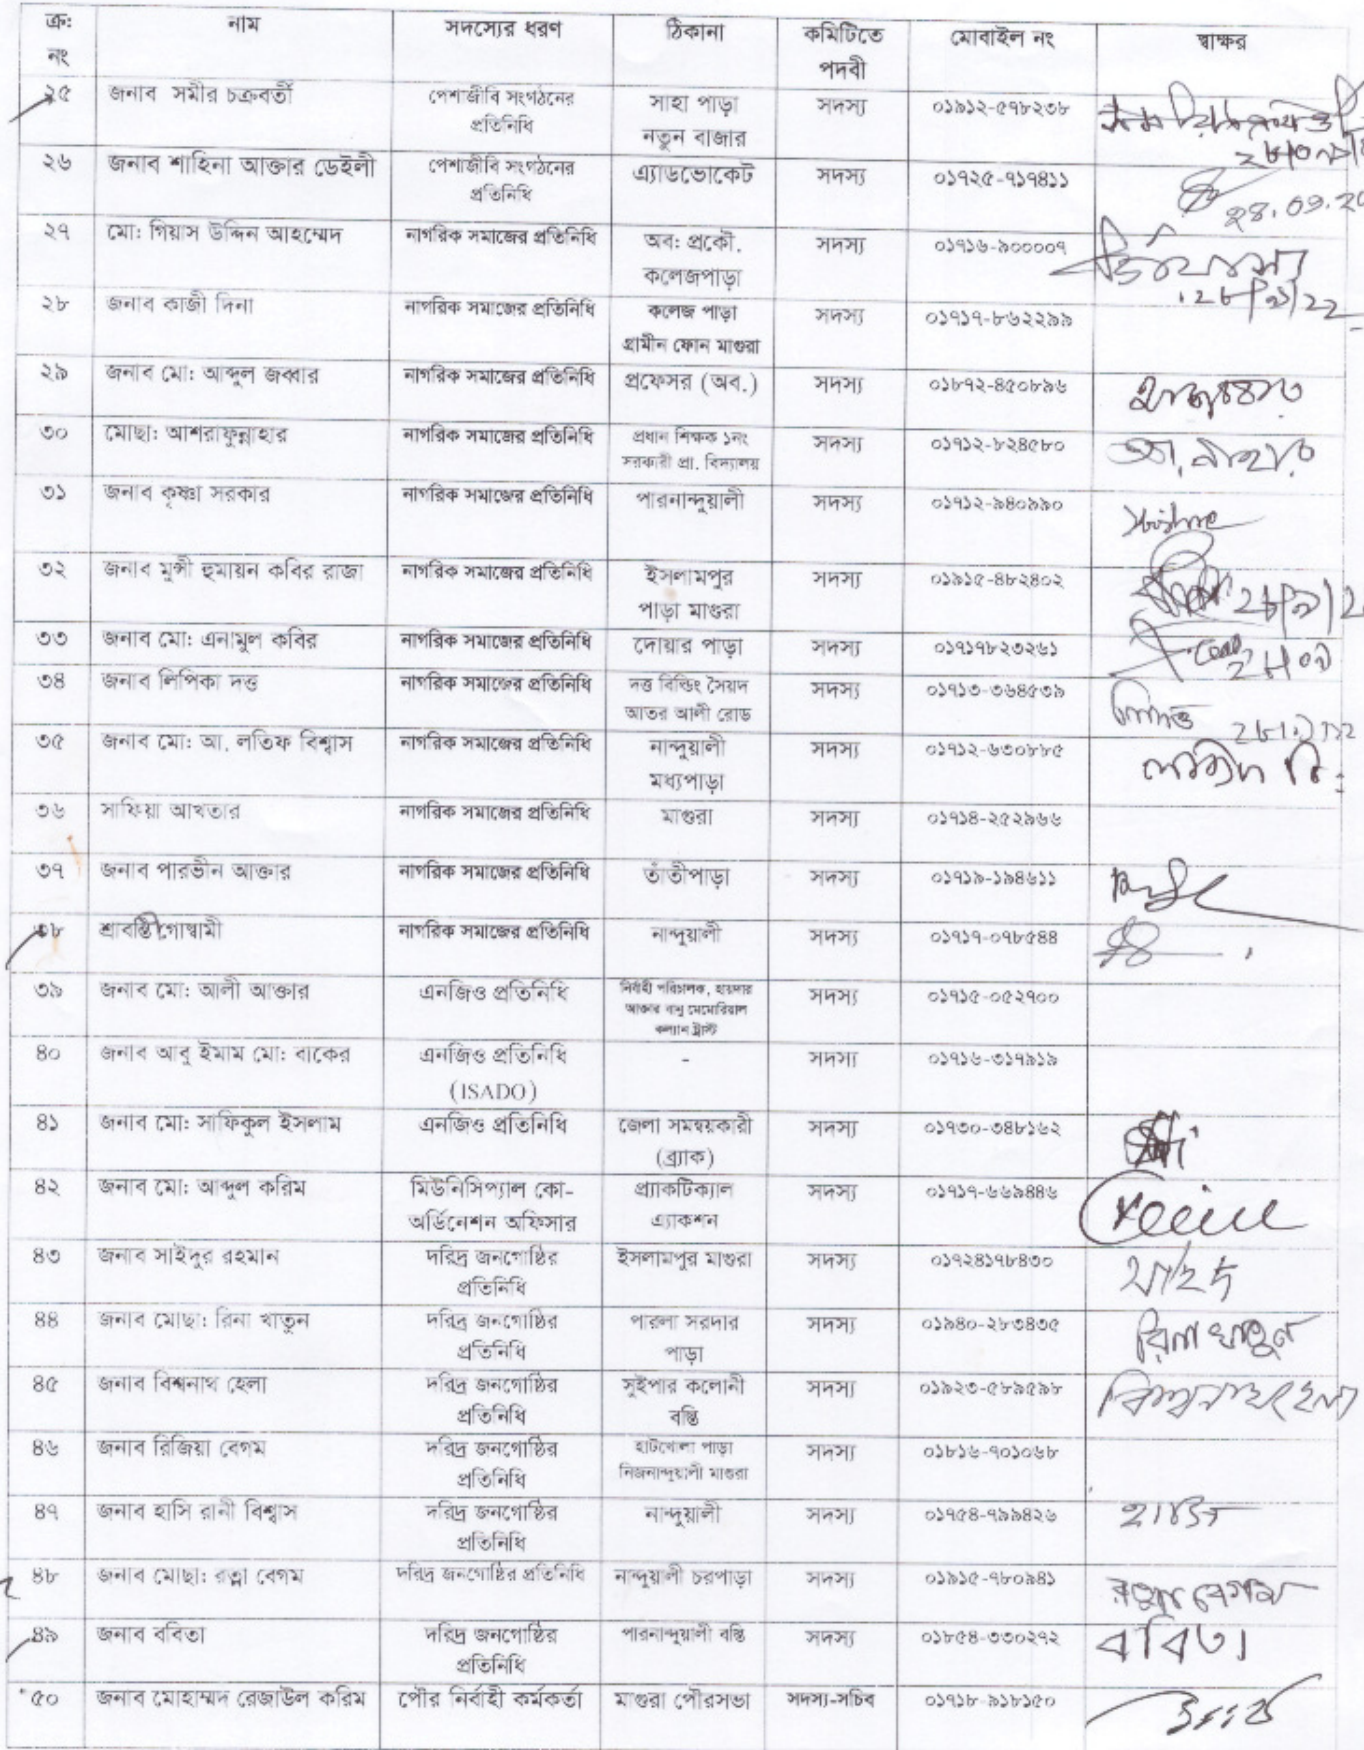 ক্র: নং | নাম | সদস্যের ধরণ | ঠিকানা | কমিটিতে পদবী | মোবাইল নং | স্বাক্ষর
২৫ | জনাব সমীর চক্রবর্তী | পেশাজীবি সংগঠনের প্রতিনিধি | সাহা পাড়া নতুন বাজার | সদস্য | ০১৯১২-৫৭৮২৩৮
২৬ | জনাব শাহিনা আক্তার ডেইলী | পেশাজীবি সংগঠনের প্রতিনিধি | এ্যাডভোকেট | সদস্য | ০১৭২৫-৭১৭৪১১
২৭ | মো: গিয়াস উদ্দিন আহম্মেদ | নাগরিক সমাজের প্রতিনিধি | অব: প্রকৌ. কলেজপাড়া | সদস্য | ০১৭১৬-৯০০০০৭
২৮ | জনাব কাজী দিনা | নাগরিক সমাজের প্রতিনিধি | কলেজ পাড়া গ্রামীন ফোন মাগুরা | সদস্য | ০১৭১৭-৮৬২২৯৯
২৯ | জনাব মো: আব্দুল জব্বার | নাগরিক সমাজের প্রতিনিধি | প্রফেসর (অব.) | সদস্য | ০১৮৭২-৪৫০৮৯৬
৩০ | মোছা: আশরাফুন্নাহার | নাগরিক সমাজের প্রতিনিধি | প্রধান শিক্ষক ১নং সরকারী প্রা. বিদ্যালয় | সদস্য | ০১৭১২-৮২৪৫৮০ | আ. নাহার
৩১ | জনাব কৃষ্ণা সরকার | নাগরিক সমাজের প্রতিনিধি | পারনান্দুয়ালী | সদস্য | ০১৭১২-৯৪০৯৯০
৩২ | জনাব মুন্সী হুমায়ন কবির রাজা | নাগরিক সমাজের প্রতিনিধি | ইসলামপুর পাড়া মাগুরা | সদস্য | ০১৯১৫-৪৮২৪০২
৩৩ | জনাব মো: এনামুল কবির | নাগরিক সমাজের প্রতিনিধি | দোয়ার পাড়া | সদস্য | ০১৭১৭৮২৩২৬১
৩৪ | জনাব লিপিকা দত্ত | নাগরিক সমাজের প্রতিনিধি | দত্ত বিল্ডিং সৈয়দ আতর আলী রোড | সদস্য | ০১৭১৩-৩৬৪৫৩৯
৩৫ | জনাব মো: আ. লতিফ বিশ্বাস | নাগরিক সমাজের প্রতিনিধি | নান্দুয়ালী মধ্যপাড়া | সদস্য | ০১৭১২-৬৩০৮৮৫
৩৬ | সাফিয়া আখতার | নাগরিক সমাজের প্রতিনিধি | মাগুরা | সদস্য | ০১৭১৪-২৫২৯৬৬
৩৭ | জনাব পারভীন আক্তার | নাগরিক সমাজের প্রতিনিধি | তাঁতীপাড়া | সদস্য | ০১৭১৯-১৯৪৬১১
৩৮ | শ্রাবন্তি গোস্বামী | নাগরিক সমাজের প্রতিনিধি | নান্দুয়ালী | সদস্য | ০১৭১৭-০৭৮৫৪৪
৩৯ | জনাব মো: আলী আক্তার | এনজিও প্রতিনিধি | নির্বাহী পরিচালক, হায়দার আক্তার বাবু মেমোরিয়াল কল্যাণ ট্রাস্ট | সদস্য | ০১৭১৫-০৫২৭০০
৪০ | জনাব আবু ইমাম মো: বাকের | এনজিও প্রতিনিধি (ISADO) | - | সদস্য | ০১৭১৬-৩১৭৯১৯
৪১ | জনাব মো: সাফিকুল ইসলাম | এনজিও প্রতিনিধি | জেলা সমন্বয়কারী (ব্র্যাক) | সদস্য | ০১৭৩০-৩৪৮১৬২
৪২ | জনাব মো: আব্দুল করিম | মিউনিসিপ্যাল কো-অর্ডিনেশন অফিসার | প্র্যাকটিক্যাল এ্যাকশন | সদস্য | ০১৭১৭-৬৬৯৪৪৬
৪৩ | জনাব সাইদুর রহমান | দরিদ্র জনগোষ্ঠির প্রতিনিধি | ইসলামপুর মাগুরা | সদস্য | ০১৭২৪১৭৮৪৩০
৪৪ | জনাব মোছা: রিনা খাতুন | দরিদ্র জনগোষ্ঠির প্রতিনিধি | পারলা সরদার পাড়া | সদস্য | ০১৯৪০-২৮৩৪৩৫ | রিনা খাতুন
৪৫ | জনাব বিশ্বনাথ হেলা | দরিদ্র জনগোষ্ঠির প্রতিনিধি | সুইপার কলোনী বস্তি | সদস্য | ০১৯২৩-৫৮৯৫৯৮ | বিশ্বনাথ হেলা
৪৬ | জনাব রিজিয়া বেগম | দরিদ্র জনগোষ্ঠির প্রতিনিধি | হাটখোলা পাড়া নিজনান্দুয়ালী মাগুরা | সদস্য | ০১৮১৬-৭০১০৬৮
৪৭ | জনাব হাসি রানী বিশ্বাস | দরিদ্র জনগোষ্ঠির প্রতিনিধি | নান্দুয়ালী | সদস্য | ০১৭৫৪-৭৯৯৪২৬
৪৮ | জনাব মোছা: রত্না বেগম | দরিদ্র জনগোষ্ঠির প্রতিনিধি | নান্দুয়ালী চরপাড়া | সদস্য | ০১৯১৫-৭৮০৯৪১ | রত্না বেগম
৪৯ | জনাব ববিতা | দরিদ্র জনগোষ্ঠির প্রতিনিধি | পারনান্দুয়ালী বস্তি | সদস্য | ০১৮৫৪-৩৩০২৭২ | ববিতা
৫০ | জনাব মোহাম্মদ রেজাউল করিম | পৌর নির্বাহী কর্মকর্তা | মাগুরা পৌরসভা | সদস্য-সচিব | ০১৭১৮-৯১৮১৫০